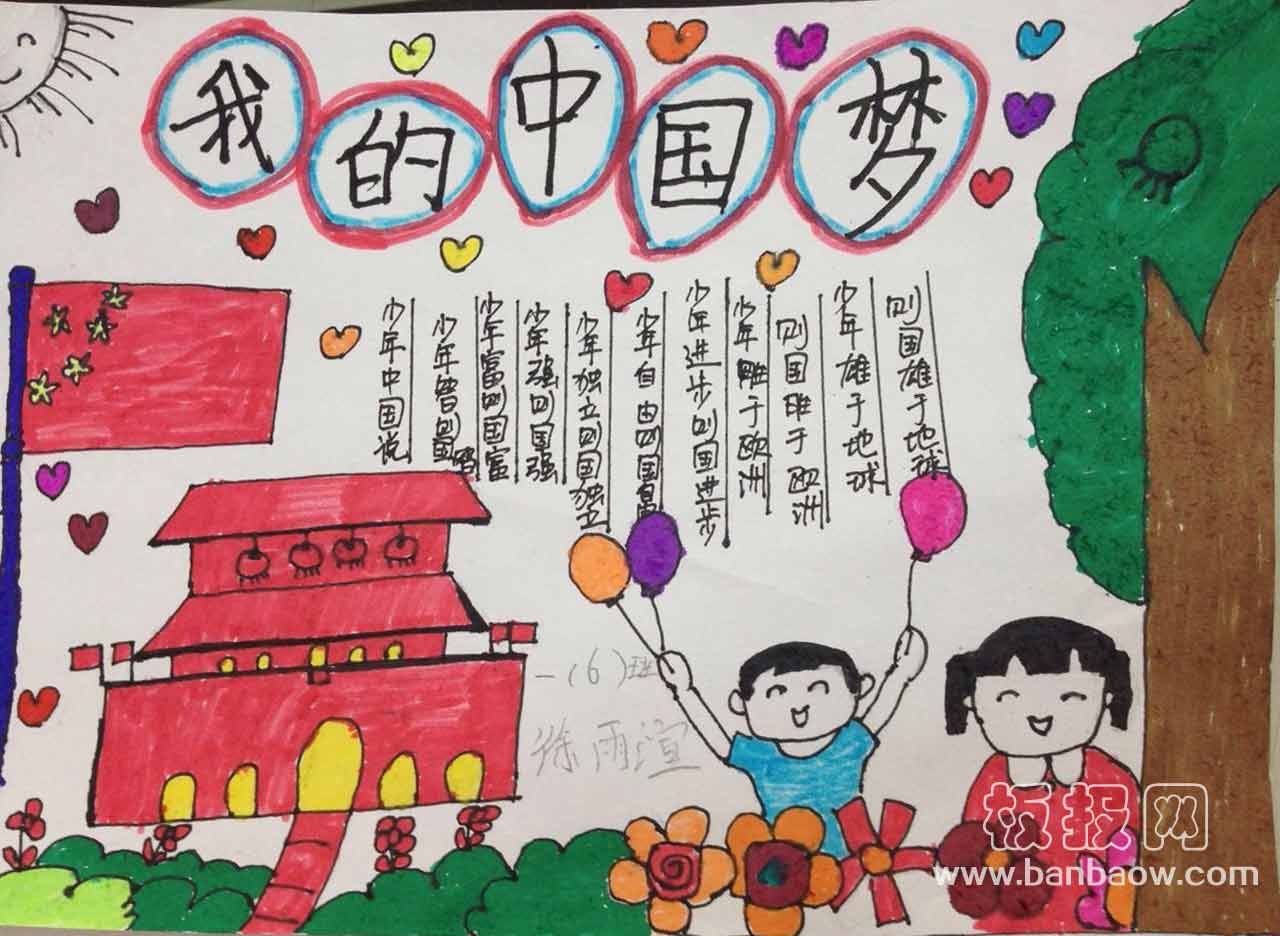 我的中国梦
少年中国说
少年智则国智
少年富则国富
少年强则国强
少年独立则国独立
少年自由则国
少年进步则国进步
少年胜于欧洲
则国胜于欧洲
少年雄于地球
则国雄于地球
一(6)班
徐雨渲
板报网
www.banbaow.com